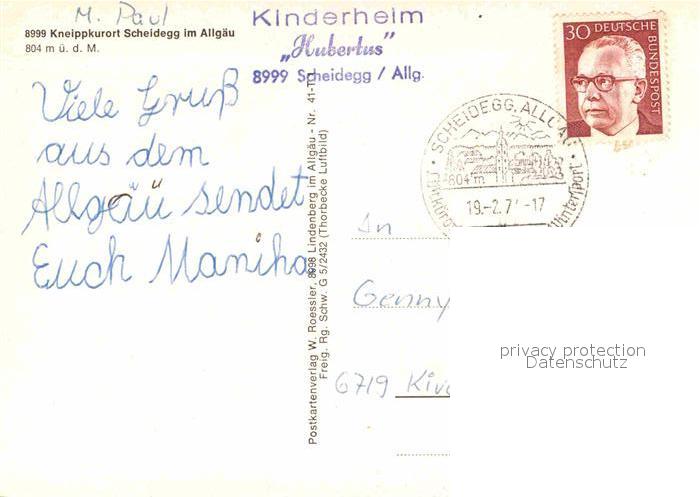 M. Paul
8999 Kneippkurort Scheidegg im Allgäu
804 m ü. d. M.
Kinderheim
„Hubertus"
8999 Scheidegg / Allg.
30 DEUTSCHE BUNDESPOST
SCHEIDEGG, ALLGÄU
804 m
19.-2.7 -17
Wintersport
Viele Gruß
aus dem
Allgäu sendet
Euch Manika
Postkartenverlag W. Roessler, 8998 Lindenberg im Allgäu - Nr. 41-111
Freig. Rg. Schw. G 5/2432 (Thorbecke Luftbild)
An
Genny
6719 Kir
privacy protection
Datenschutz